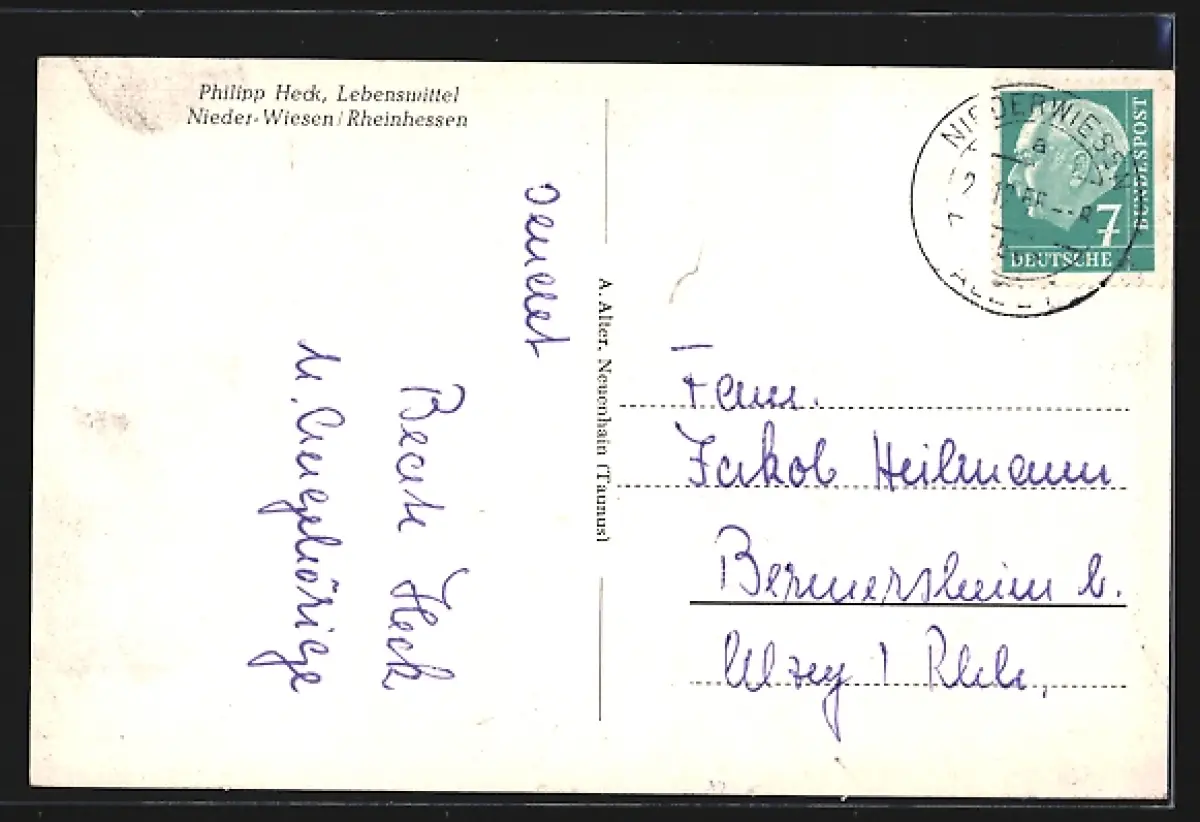 Philipp Heck, Lebensmittel
Nieder-Wiesen/Rheinhessen
sendet
Beate Heck
u. Angehörige
A. Alter, Neuenhain (Taunus)
NIEDERWIESEN
a
DEUTSCHE
BUNDESPOST
7
Fam.
Jakob Heilmann
Bermersheim b.
Alzey / Rhh.